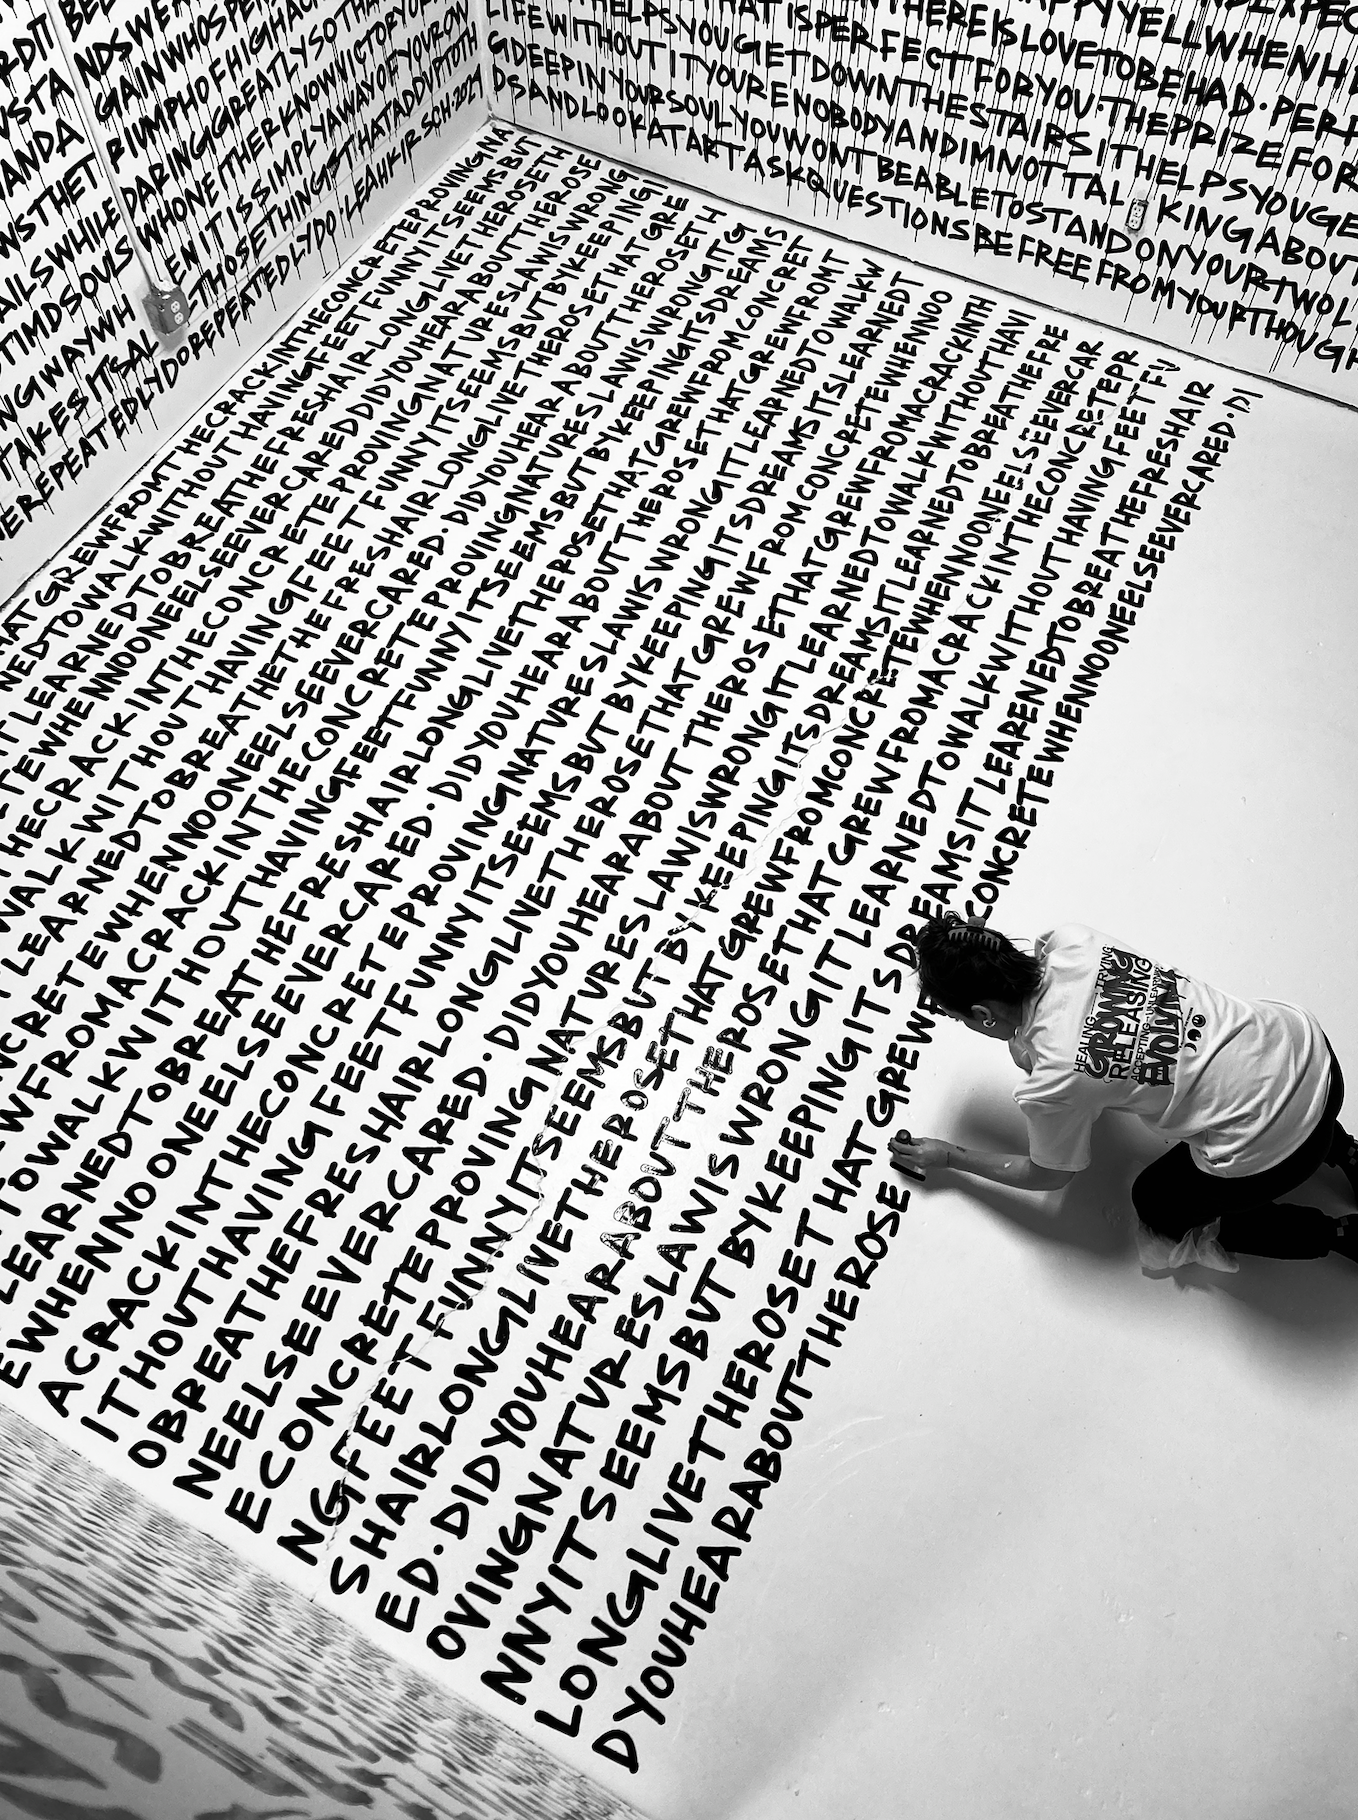 BEE
USTA NDSWEA
ANDA GAINWHOSPEN
WSTHET RIUMPHOFHIGHACH
AILSWHILE DARINGGREATLYSOTHA
TIMIDSOULS WHONEITHERKNOWVICTORY
NGWAYWH ENITISSIMPLYAWAYOFYOUROW
TAKESITSAL LTHOSETHINGSTHATADDUPTOTH
VEREPEATEDLYDOREPEATEDLYDO·LEAHKIRSCH·2021
THEREISLOVETOBEHAD·PERF
THATISPERFECTFORYOU·THEPRIZEFOR
LIFEWITHOUTITYOURENOBODYANDIMNOTTALKINGABOUT
GDEEPINYOURSOULYOUWONTBEABLETOSTANDONYOURTWOL
DSANDLOOKATARTASKQUESTIONSBEFREEFROMYOURTHOUGH
HATGREWFROMTHECRACKINTHECONCRETEPROVINGNA
NEDTOWALKWITHOUTHAVINGFEETFUNNYITSEEMSBUT
TLEARNEDTOBREATHETHEFRESHAIRLONGLIVETHEROSETH
ETEWHENNOONEELSEEVERCAREDDIDYOUHEARABOUTTHEROSE
THECRACKINTHECONCRETEPROVINGNATURESLAWISWRONG
WALKWITHOUTHAVINGFEETFUNNYITSEEMSBUTBYKEEPINGI
TLEARNEDTOBREATHETHEFRESHAIRLONGLIVETHEROSETHATGRE
NCRETEWHENNOONEELSEEVERCARED·DIDYOUHEARABOUTTHEROSETH
WFROMACRACKINTHECONCRETEPROVINGNATURESLAWISWRONGITG
TOWALKWITHOUTHAVINGFEETFUNNYITSEEMSBUTBYKEEPINGITSDREAMS
LEARNEDTOBREATHETHEFRESHAIRLONGLIVETHEROSETHATGREWFROMCONCRET
EWHENNOONEELSEEVERCARED·DIDYOUHEARABOUTTHEROSETHATGREWFROMT
ACRACKINTHECONCRETEPROVINGNATURESLAWISWRONGITLEARNEDTOWALKW
ITHOUTHAVINGFEETFUNNYITSEEMSBUTBYKEEPINGITSDREAMSITSLEARNEDT
OBREATHEFRESHAIRLONGLIVETHEROSETHATGREWFROMCONCRETEWHENNOO
NEELSEEVERCARED·DIDYOUHEARABOUTTHEROSETHATGREWFROMACRACKINTH
ECONCRETEPROVINGNATURESLAWISWRONGITLEARNEDTOWALKWITHOUTHAVI
NGFEETFUNNYITSEEMSBUTBYKEEPINGITSDREAMSITLEARNEDTOBREATHEFRE
SHAIRLONGLIVETHEROSETHATGREWFROMCONCRETEWHENNOONEELSEEVERCAR
ED·DIDYOUHEARABOUTTHEROSETHATGREWFROMACRACKINTHECONCRETEPR
OVINGNATURESLAWISWRONGITLEARNEDTOWALKWITHOUTHAVINGFEETFU
NNYITSEEMSBUTBYKEEPINGITSDREAMSITLEARENEDTOBREATHEFRESHAIR
LONGLIVETHEROSETHATGREWF CONCRETEWHENNOONEELSEEVERCARED·DI
DYOUHEARABOUTTHEROSE
HEALING TRYING
GROWING
RELEASING
ACCEPTING
EVOLVING